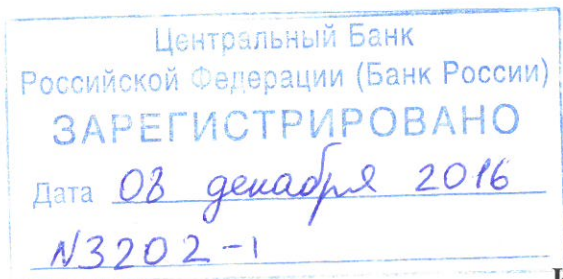 Центральный Банк
Российской Федерации (Банк России)
ЗАРЕГИСТРИРОВАНО
Дата 08 декабря 2016
N3202-1